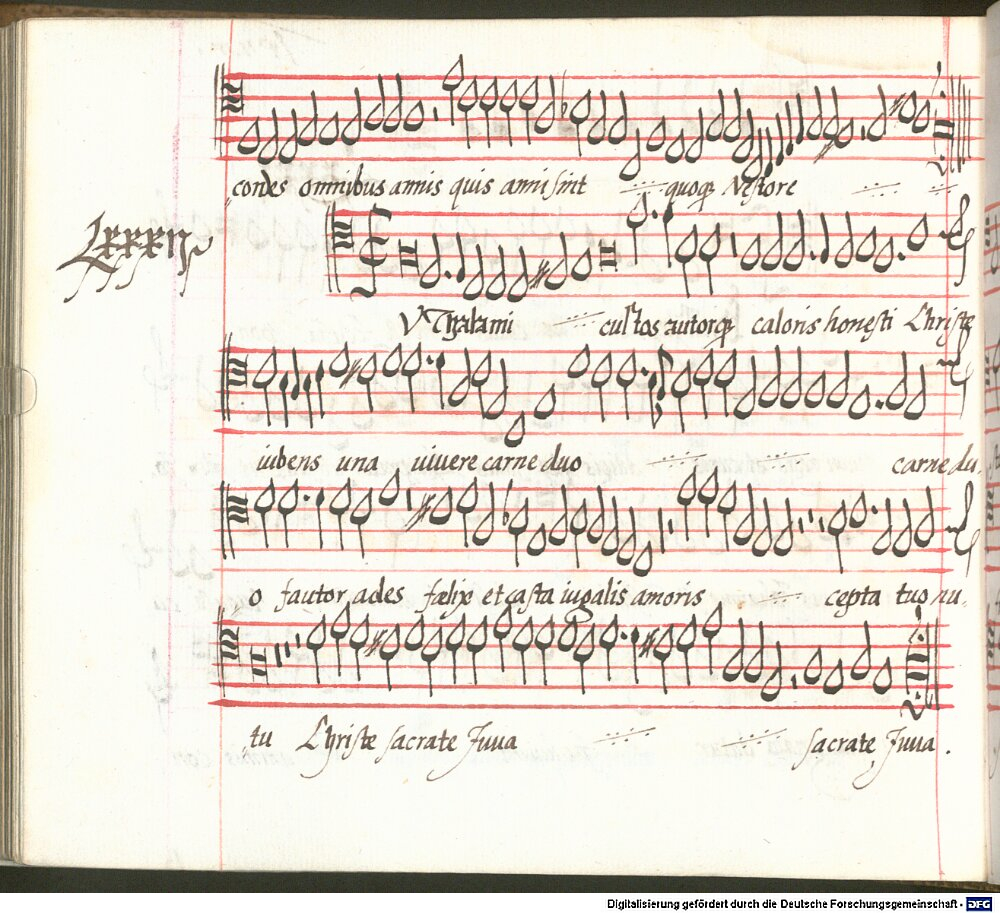 condes omnibus annis quis anni sint quoq Nestore
Lxxxii
V Thalami custos autorq caloris honesti Christe
iubens una uiuere carne duo carne du
o fautor ades fælix et casta iugalis amoris cepta tuo nu.
tu Christe sacrate Juua sacrate Juua .
Digitalisierung gefördert durch die Deutsche Forschungsgemeinschaft - DFG